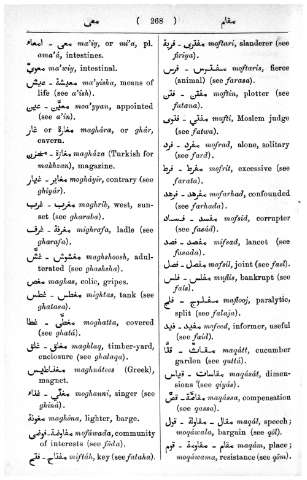 معى ( 268 ) مقام
امعاء - معى ma'iy, or mi'a, pl.
ama'á, intestines.
معوي ma'wiy, intestinal.
عيش - معيشة ma'yisha, means of
life (see a'ish).
عين - معيّن moa'yyan, appointed
(see a'in).
غار or مغارة maghára, or ghár,
cavern.
مغازة magháza (Turkish for
makhzan), magazine.
غيار - مغاير mogháyir, contrary (see
ghiyár).
غرب - مغرب maghrib, west, sun-
set (see gharaba).
غرف - مغرفة mighrafa, ladle (see
gharafa).
غشّ - مغشوش maghshoosh, adul-
terated (see ghashsha).
مغص maghas, colic, gripes.
غطس - مغطس mightas, tank (see
ghatasa).
غطا - مغطّى moghatta, covered
(see ghatá).
غلق - مغلق maghlaq, timber-yard,
enclosure (see ghalaqa).
مغناطيس maghnátees (Greek),
magnet.
غناء - مغنّي moghanni, singer (see
ghiná).
مغونة moghóna, lighter, barge.
فوض - مفاوضة mofáwada, community
of interests (see fóda).
فتح - مفتاح miftáh, key (see fataha).
فرية - مفتري moftari, slanderer (see
firiya).
فرس - مفترس moftaris, fierce
(animal) (see farasa).
فتن - مفتن moftin, plotter (see
fatana).
فتوى - مفتي mofti, Moslem judge
(see fatwa).
فرد - مفرد mofrad, alone, solitary
(see fard).
فرط - مفرط mofrit, excessive (see
farata).
فرهد - مفرهد mofarhad, confounded
(see farhada).
فساد - مفسد mofsid, corrupter
(see fasád).
فصد - مفصد mifsad, lancet (see
fasada).
فصل - مفصل mafsil, joint (see fasl).
فلس - مفلس muflis, bankrupt (see
fals).
فلج - مفلوج maflooj, paralytic,
split (see falaja).
فيد - مفيد mofeed, informer, useful
(see faid).
قثّا - مقثات maqátt, cucumber
garden (see qattá).
قياس - مقاسات maqását, dimen-
sions (see qiyás).
قصّ - مقاصّة maqássa, compensation
(see qassa).
قول - مقاولة - مقال maqál, speech;
moqáwala, bargain (see qól).
قوم - مقاومة - مقام maqám, place;
moqáwama, resistance (see qóm).